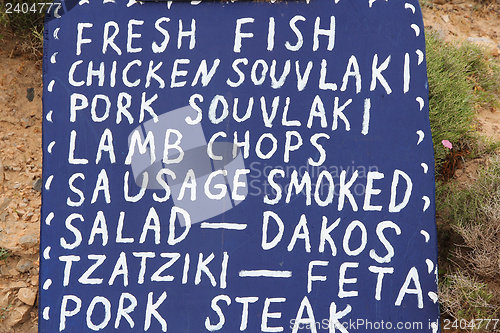 2404777
FRESH FISH
CHICKEN SOUVLAKI
PORK SOUVLAKI
LAMB CHOPS
SAUSAGE SMOKED
SALAD — DAKOS
TZATZIKI — FETA
PORK STEAK
2404777